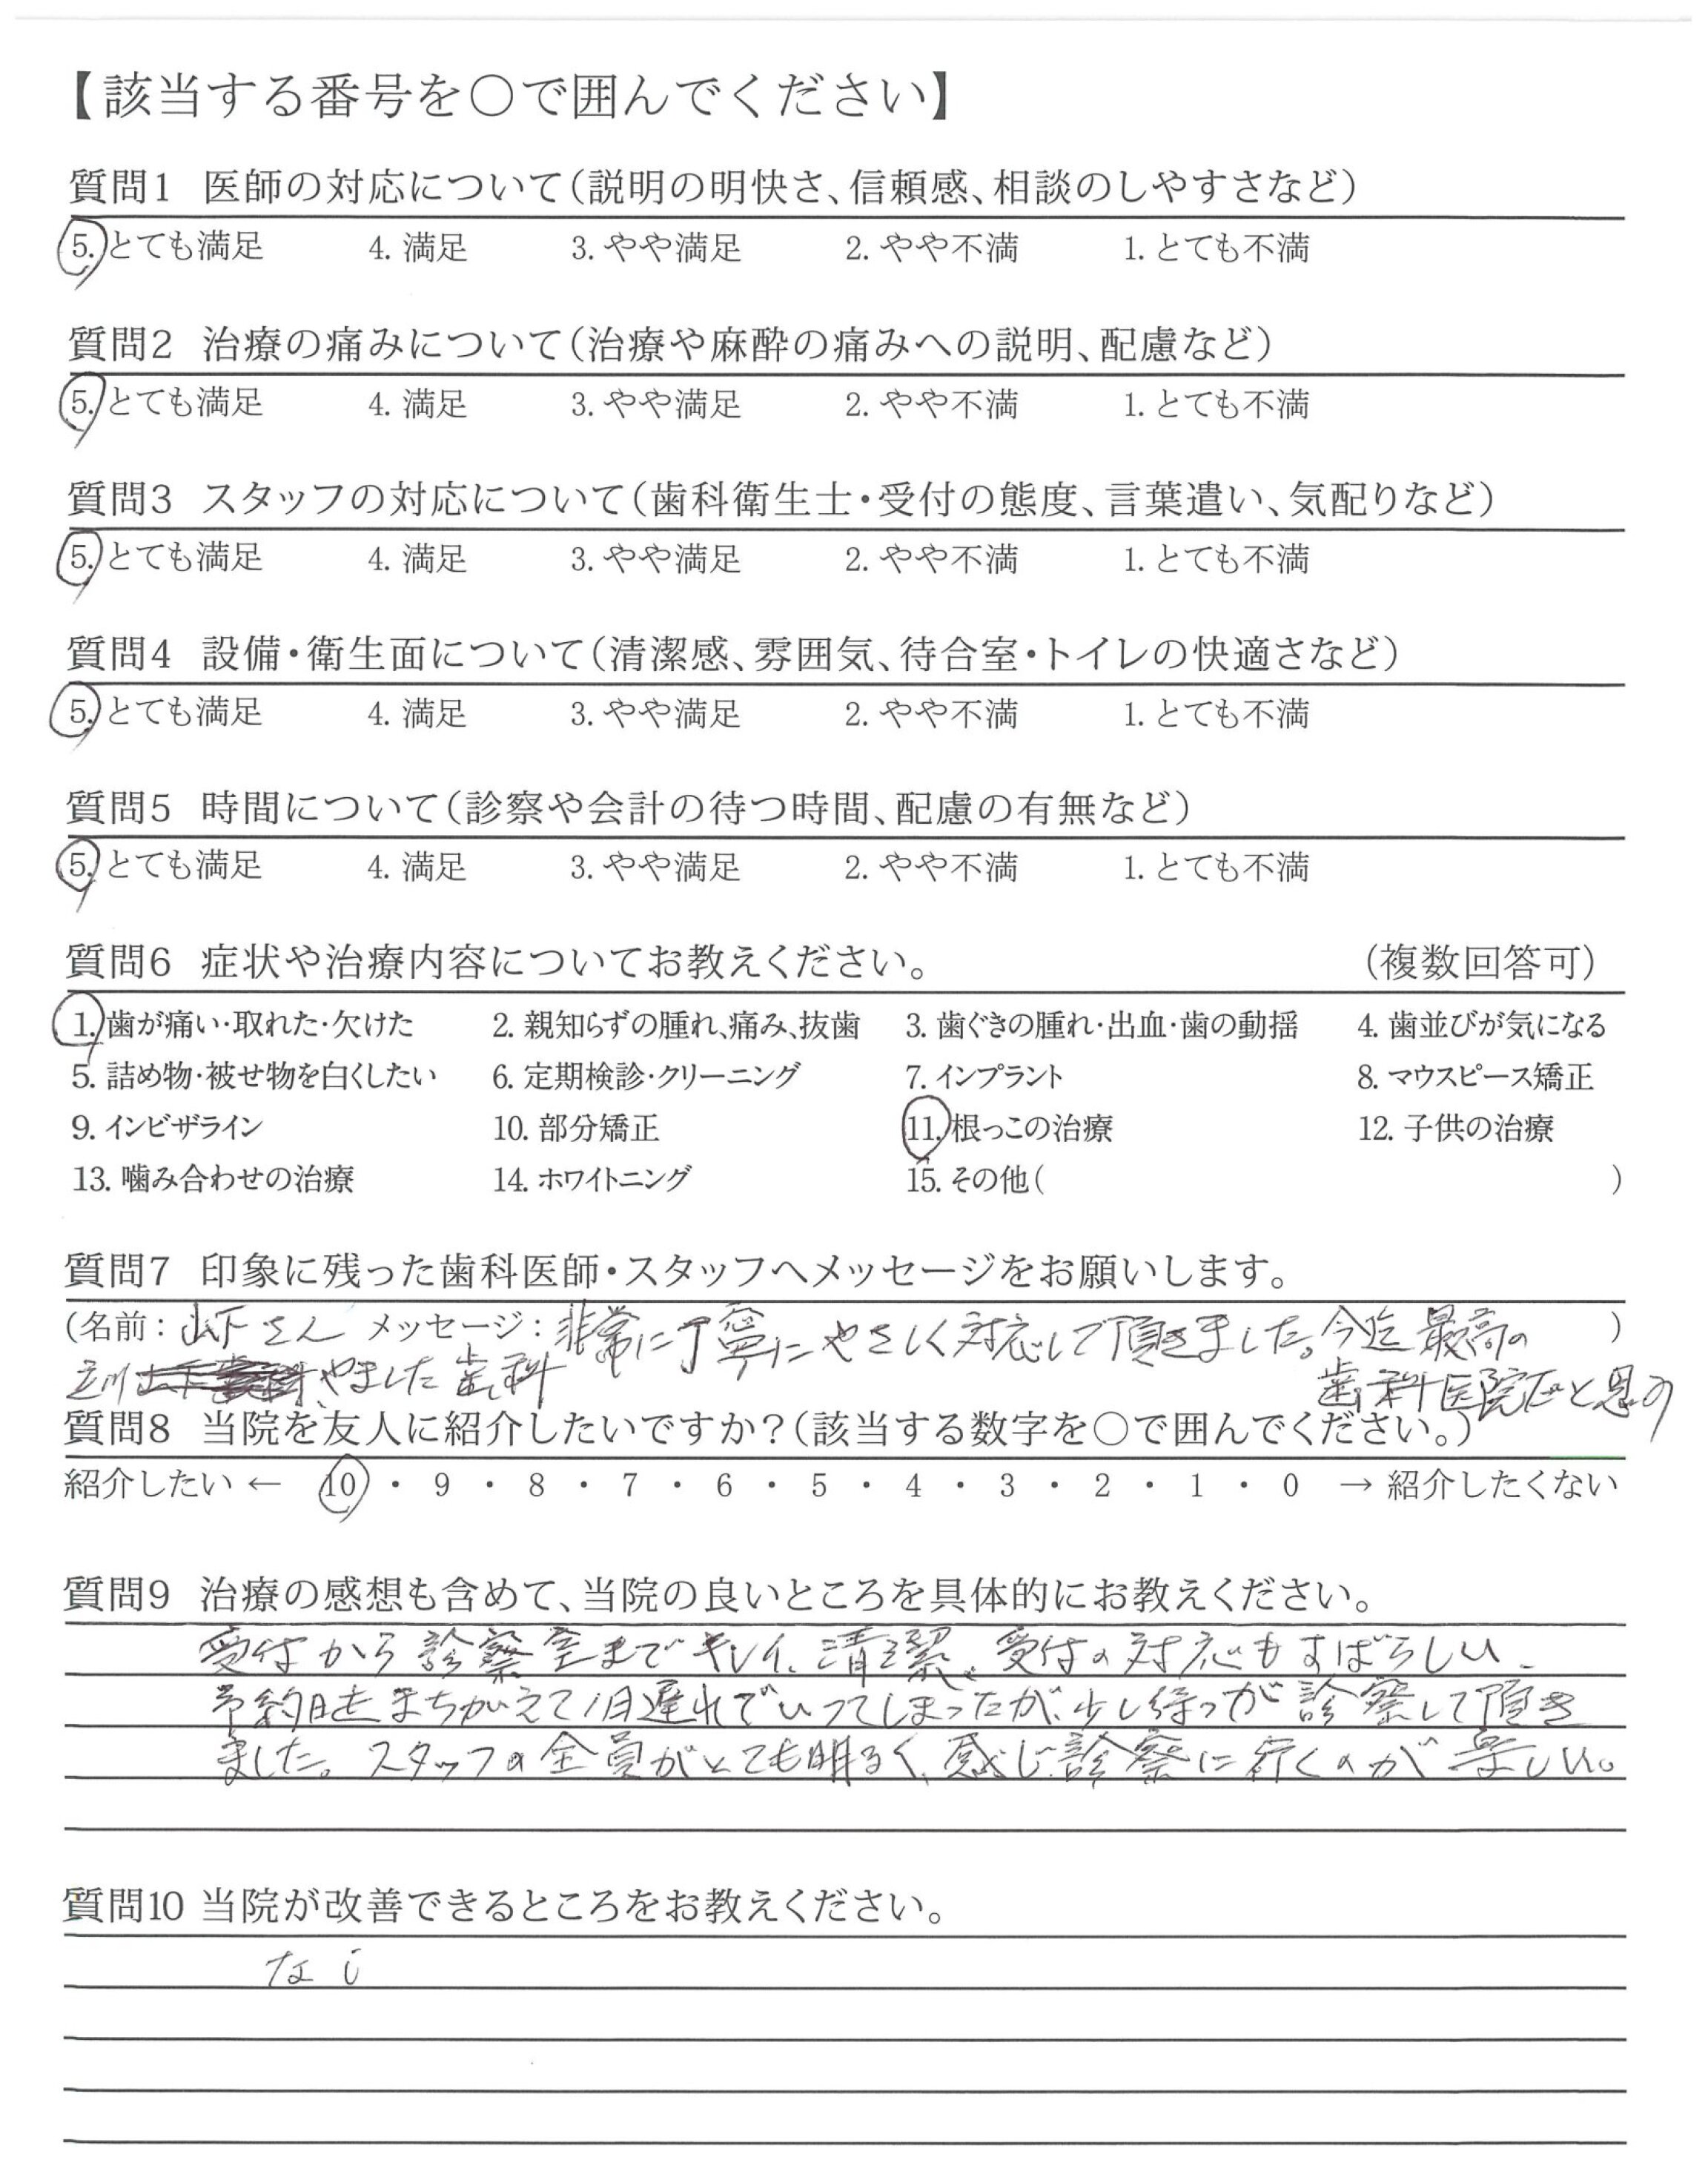 【該当する番号を○で囲んでください】
質問1 医師の対応について(説明の明快さ、信頼感、相談のしやすさなど)
5. とても満足 4. 満足 3. やや満足 2. やや不満 1. とても不満
質問2 治療の痛みについて(治療や麻酔の痛みへの説明、配慮など)
5. とても満足 4. 満足 3. やや満足 2. やや不満 1. とても不満
質問3 スタッフの対応について(歯科衛生士・受付の態度、言葉遣い、気配りなど)
5. とても満足 4. 満足 3. やや満足 2. やや不満 1. とても不満
質問4 設備・衛生面について(清潔感、雰囲気、待合室・トイレの快適さなど)
5. とても満足 4. 満足 3. やや満足 2. やや不満 1. とても不満
質問5 時間について(診察や会計の待つ時間、配慮の有無など)
5. とても満足 4. 満足 3. やや満足 2. やや不満 1. とても不満
質問6 症状や治療内容についてお教えください。 (複数回答可)
1. 歯が痛い・取れた・欠けた 2. 親知らずの腫れ、痛み、抜歯 3. 歯ぐきの腫れ・出血・歯の動揺 4. 歯並びが気になる
5. 詰め物・被せ物を白くしたい 6. 定期検診・クリーニング 7. インプラント 8. マウスピース矯正
9. インビザライン 10. 部分矯正 11. 根っこの治療 12. 子供の治療
13. 噛み合わせの治療 14. ホワイトニング 15. その他( )
質問7 印象に残った歯科医師・スタッフへメッセージをお願いします。
(名前: 山下さん メッセージ: 非常に丁寧にやさしく対応して頂きました。今迄最高の )
立川 やました歯科 歯科医院だと思う
質問8 当院を友人に紹介したいですか?(該当する数字を○で囲んでください。)
紹介したい ← 10 ・ 9 ・ 8 ・ 7 ・ 6 ・ 5 ・ 4 ・ 3 ・ 2 ・ 1 ・ 0 → 紹介したくない
質問9 治療の感想も含めて、当院の良いところを具体的にお教えください。
受付から診察室までキレイ、清潔、受付の対応もすばらしい、
予約日をまちがえて1日遅れでいってしまったが、少し待つが診察して頂き
ました。スタッフの全員がとても明るく、感じ診察に行くのが楽しい。
質問10 当院が改善できるところをお教えください。
なし